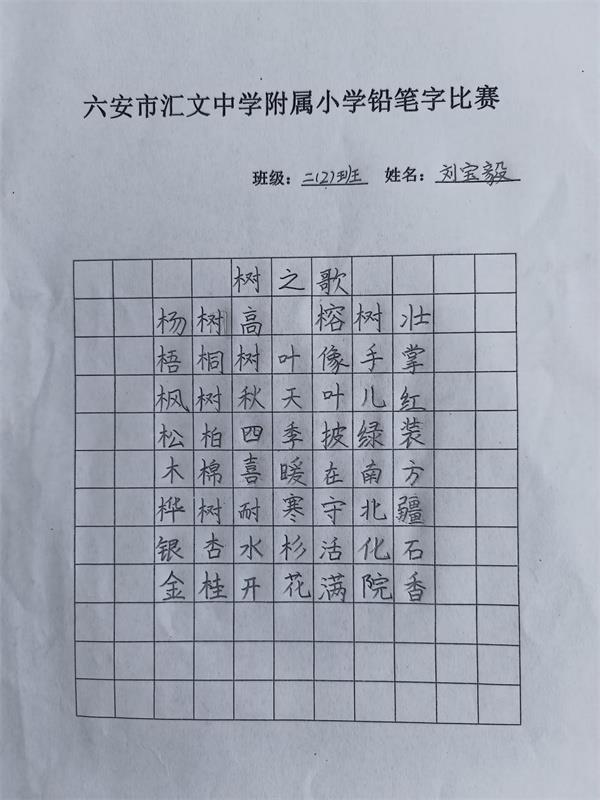 六安市汇文中学附属小学铅笔字比赛
班级：二(2)班 姓名：刘宝毅
树之歌
杨树高 榕树壮
梧桐树叶像手掌
枫树秋天叶儿红
松柏四季披绿装
木棉喜暖在南方
桦树耐寒守北疆
银杏水杉活化石
金桂开花满院香